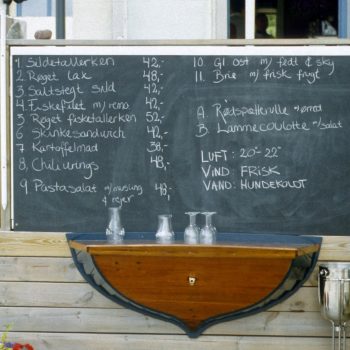 1 Sildetallerken 42,-
2. Røget laks 48,-
3 Saltstegt sild 42,-
4. Fiskefilet m/remo 42,-
5 Røget fisketallerken 52,-
6 Skinkesandwich 42,-
7 Kartoffelmad 38,-
8, Chiliwings 48,-
9 Pastasalat m/musling 48,-
& rejer
10. Gl ost m/ fedt & sky
11. Brie m/ frisk frugt
A Rødspætterulle
B. Lammecoulotte m/salat
LUFT : 20°-22°
VIND : FRISK
VAND: HUNDEKOLDT